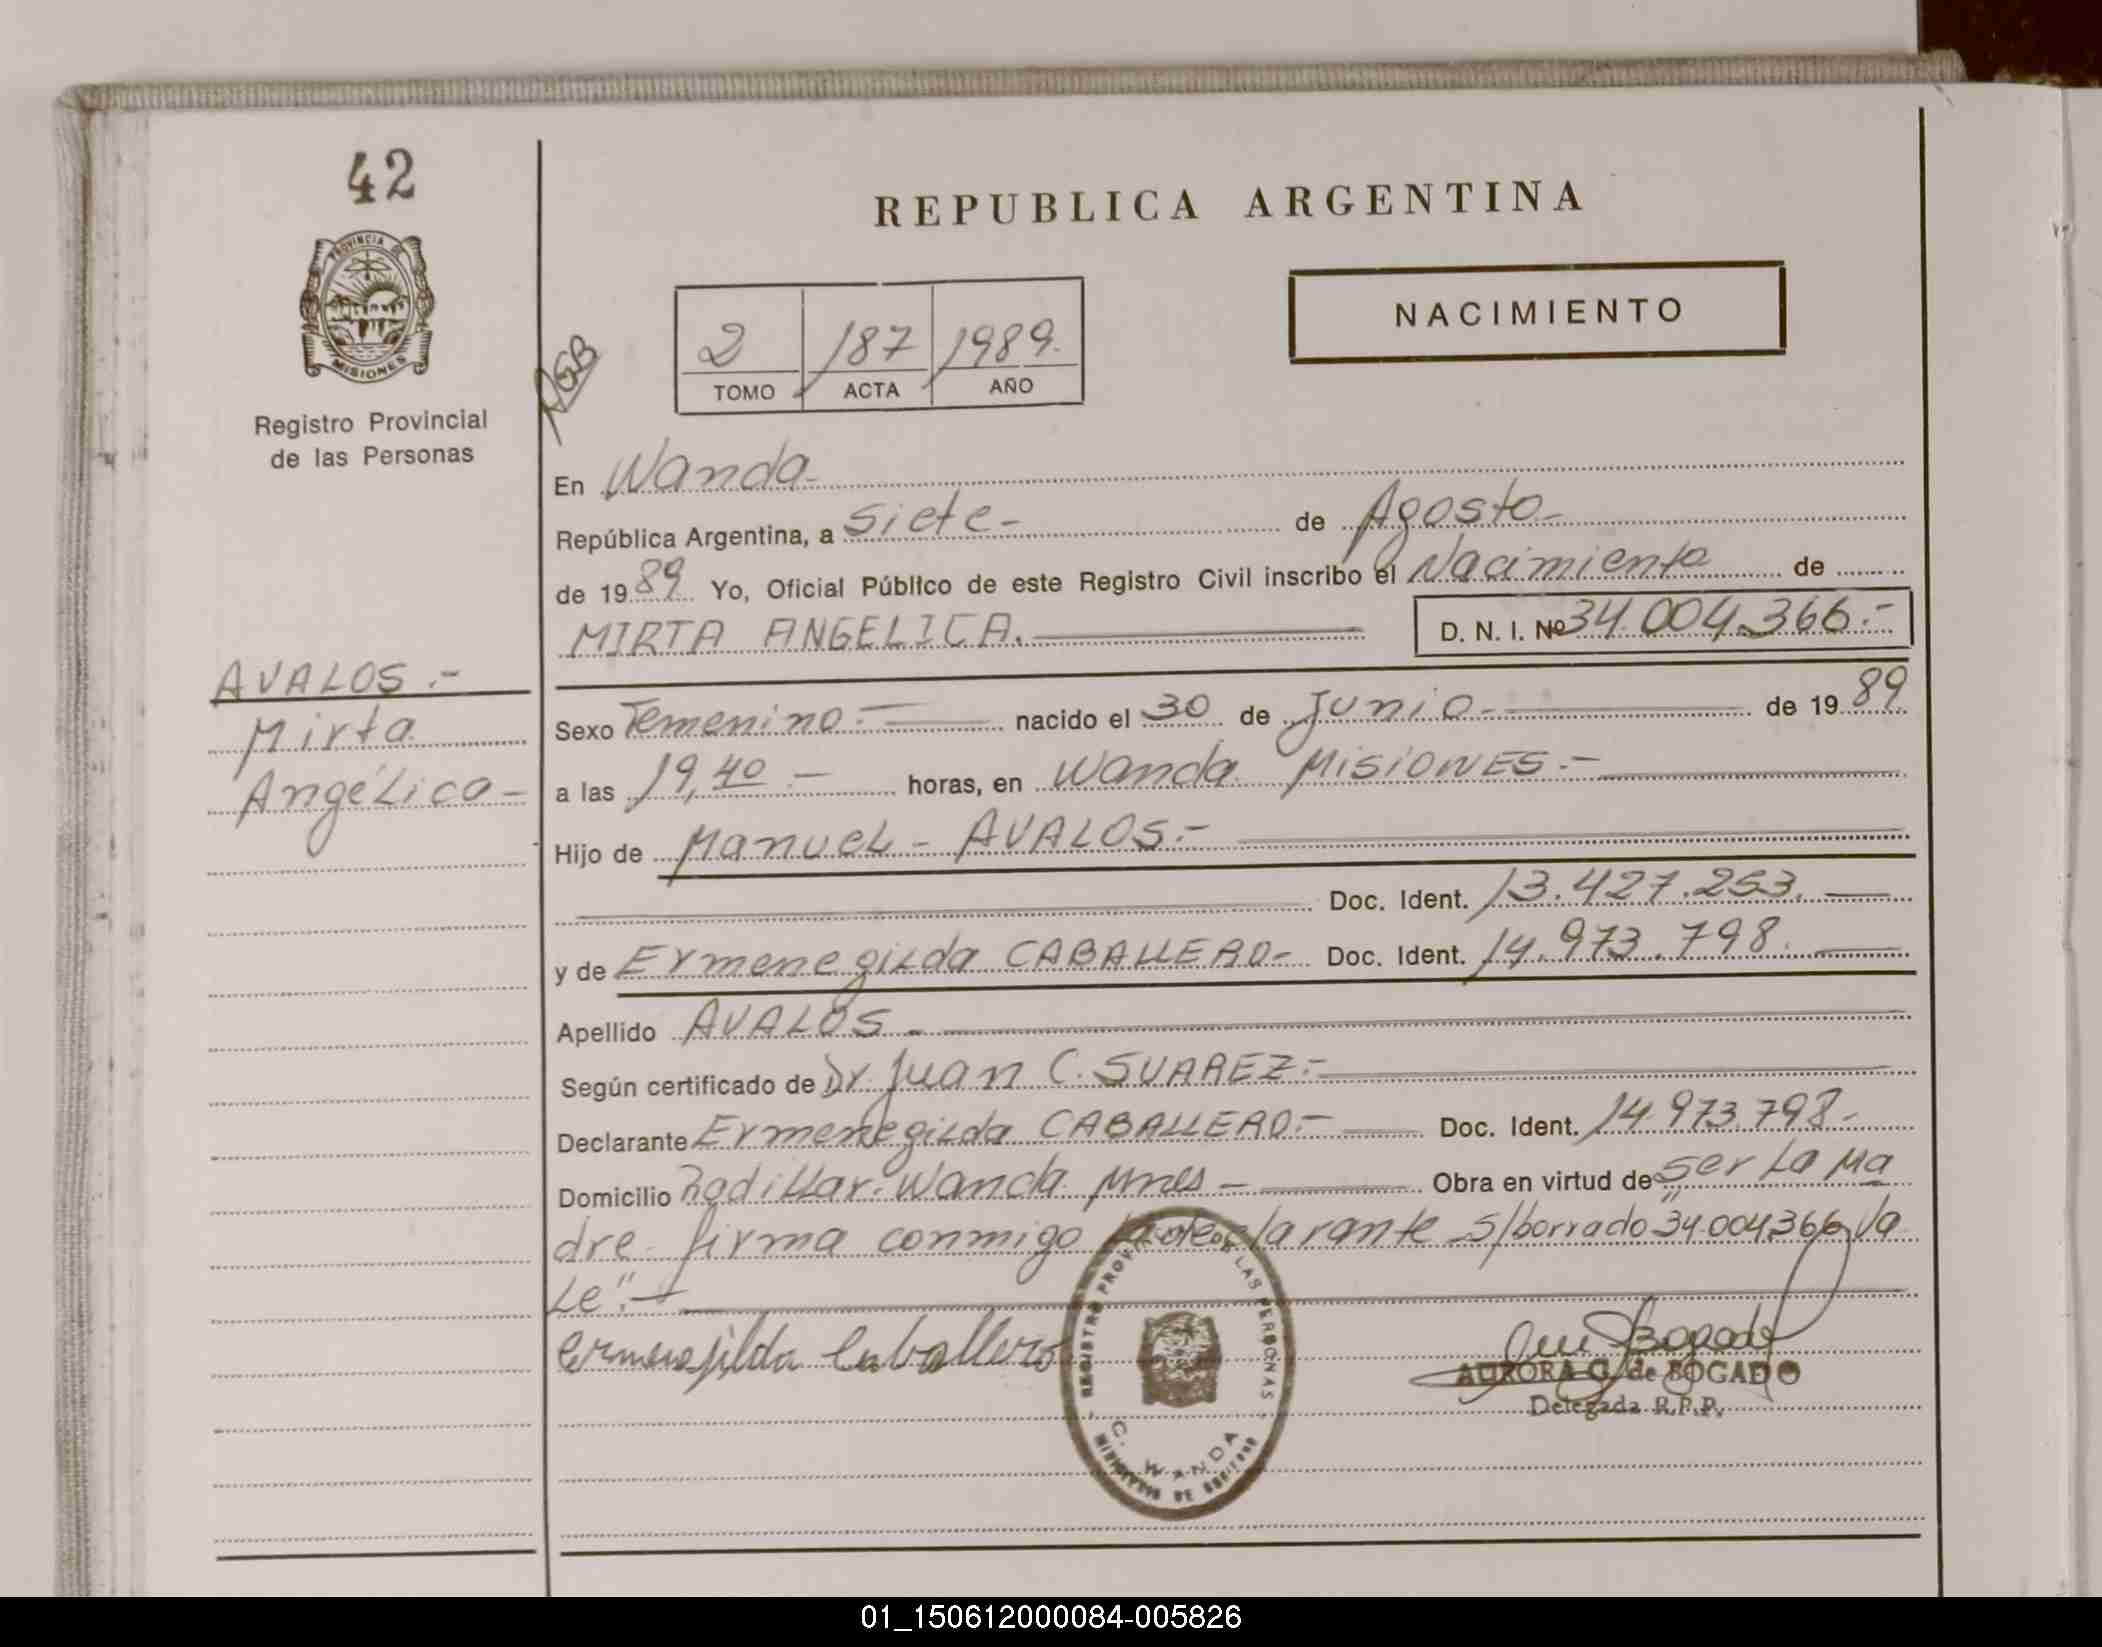 42
PROVINCIA DE
MISIONES
Registro Provincial
de las Personas
REPUBLICA ARGENTINA
NACIMIENTO
2 187 1989.
TOMO ACTA AÑO
AGB
En Wanda-
República Argentina, a Siete- de Agosto-
de 1989 Yo, Oficial Público de este Registro Civil inscribo el Nacimiento de
MIRTA ANGELICA. D. N. I. Nº 34.004.366.-
AVALOS.-
Mirta
Angélica-
Sexo Femenino.- nacido el 30 de Junio.- de 1989
a las 19,40 - horas, en Wanda Misiones.-
Hijo de Manuel - AVALOS.-
Doc. Ident. 13.427.253.
y de Ermenegilda CABALLERO- Doc. Ident. 14.973.798.
Apellido AVALOS.-
Según certificado de Dr. Juan C. SUAREZ.-
Declarante Ermenegilda CABALLERO.- Doc. Ident. 14.973.798.-
Domicilio Radillar. Wanda Mnes - Obra en virtud de ser la Ma
dre firma conmigo la declarante s/borrado "34.004.366 Va
Le".-
Ermenejilda Caballero
Bogado
AURORA G. de BOGADO
Delegada R.P.P.
REGISTRO PROVINCIAL DE LAS PERSONAS
C. WANDA
MINISTERIO DE GOBIERNO
01_150612000084-005826